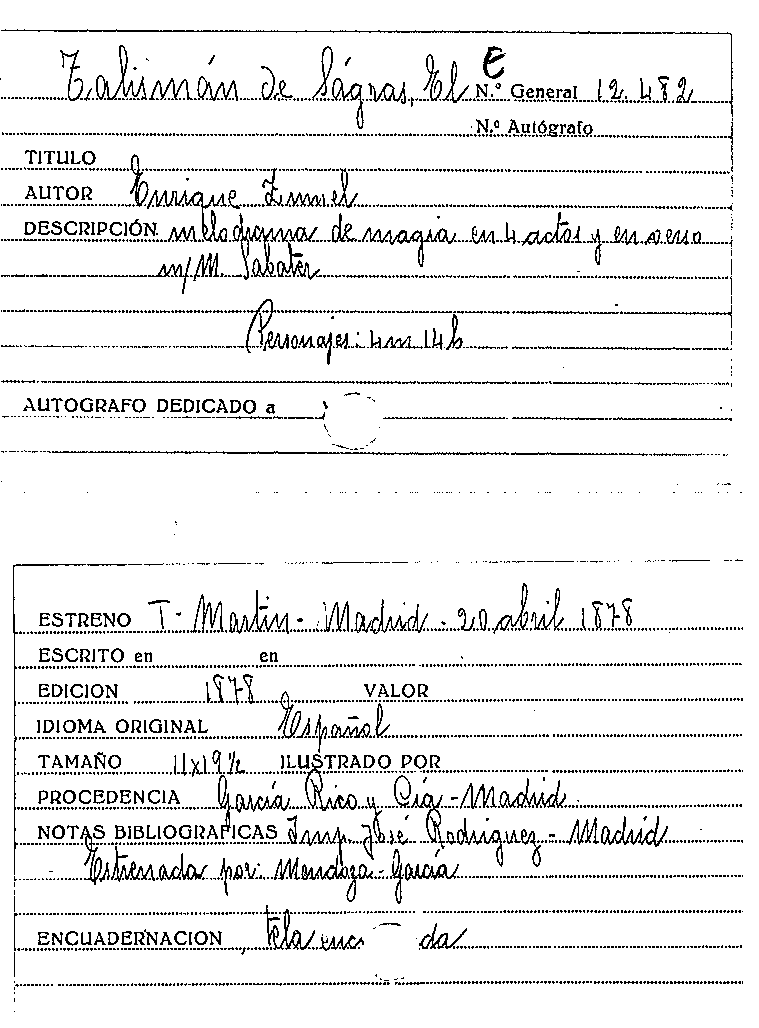 Talismán de Ságras, El E N.º General 12.482
N.º Autógrafo
TITULO
AUTOR Enrique Zumel
DESCRIPCIÓN melodrama de magia en 4 actos y en verso
m/ M. Sabater
Personajes: 4m 14h
AUTOGRAFO DEDICADO a
ESTRENO T. Martin - Madrid - 20 abril 1878
ESCRITO en en
EDICION 1878 VALOR
IDIOMA ORIGINAL Español
TAMAÑO 11x19½ ILUSTRADO POR
PROCEDENCIA García Rico y Cía - Madrid
NOTAS BIBLIOGRAFICAS Imp. José Rodriguez - Madrid
Estrenada por: Mendoza - García
ENCUADERNACION tela enc da